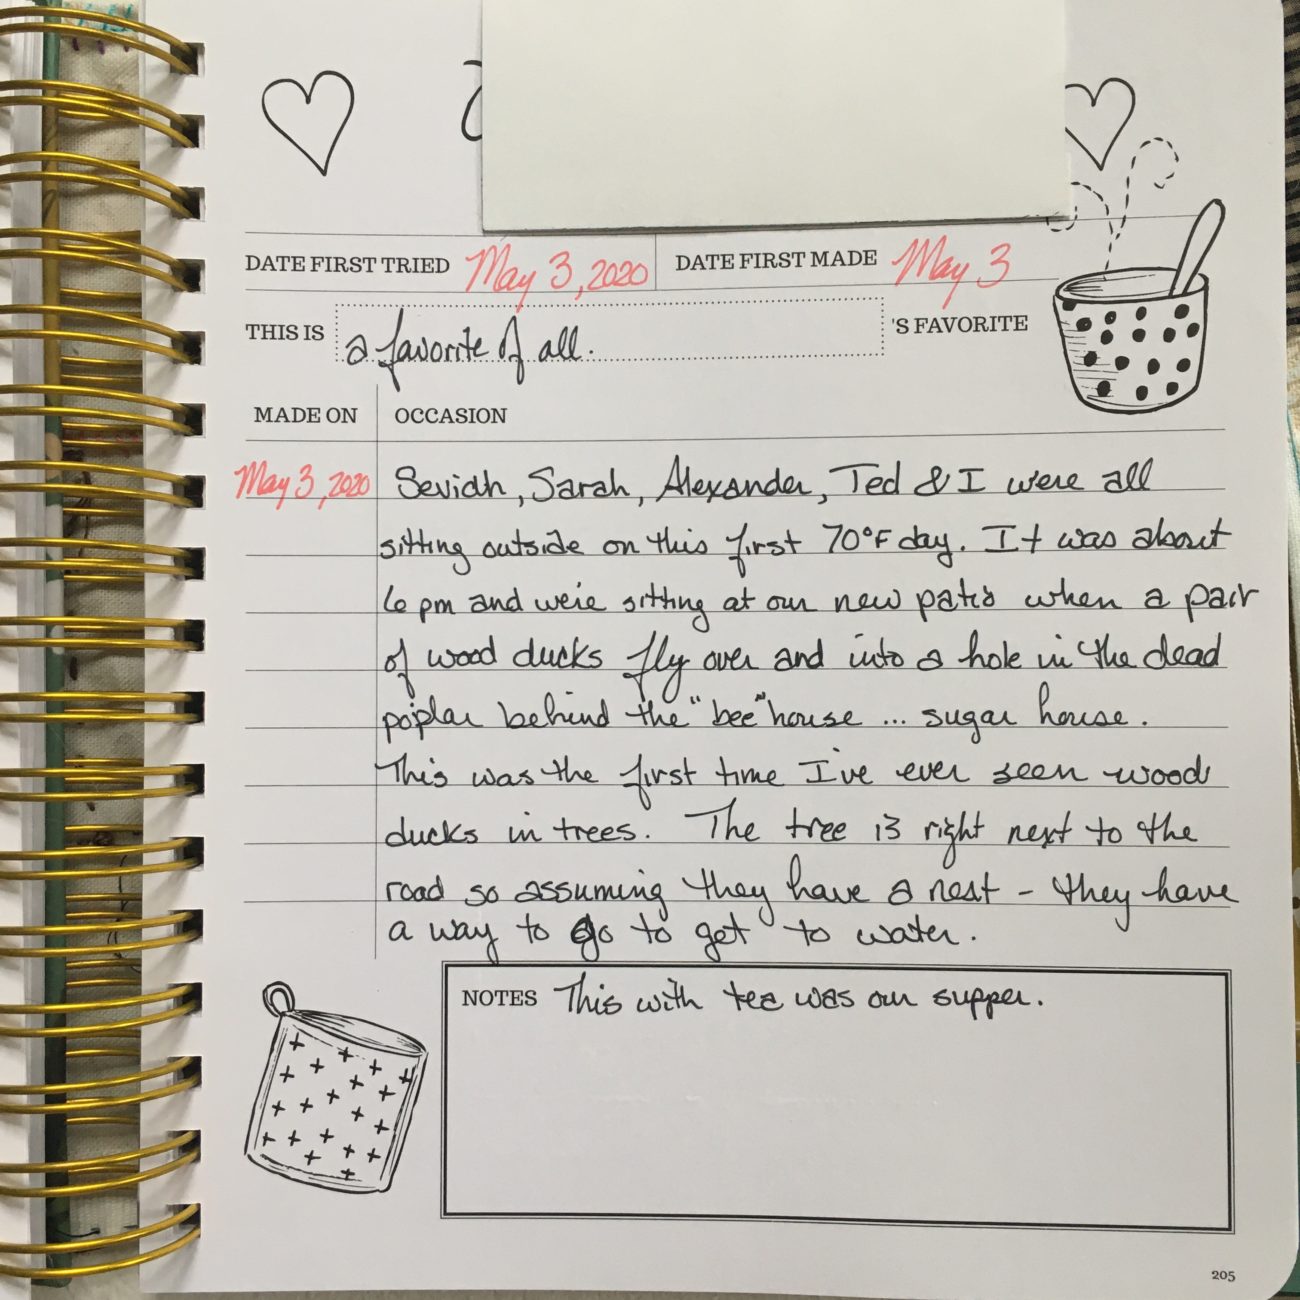 DATE FIRST TRIED May 3, 2020 DATE FIRST MADE May 3
THIS IS a favorite of all. 'S FAVORITE
MADE ON OCCASION
May 3, 2020 Seviah, Sarah, Alexander, Ted & I were all
sitting outside on this first 70°F day. It was about
6 pm and we're sitting at our new patio when a pair
of wood ducks fly over and into a hole in the dead
poplar behind the "bee" house ... sugar house.
This was the first time I've ever seen wood
ducks in trees. The tree is right next to the
road so assuming they have a nest - they have
a way to go to get to water.
NOTES This with tea was our supper.
205